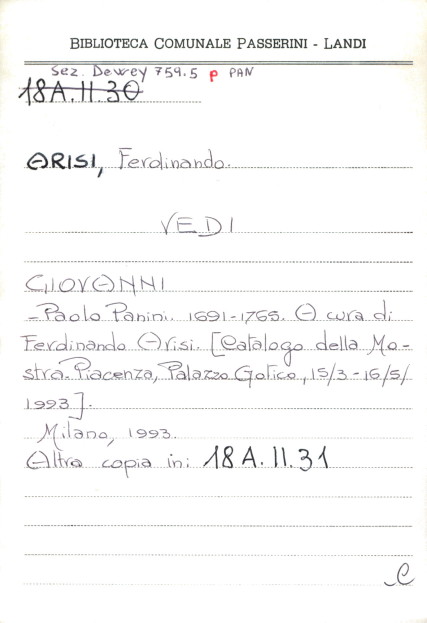 BIBLIOTECA COMUNALE PASSERINI - LANDI
Sez. Dewey 759.5 P PAN
18A.II.30
ARISI, Ferdinando.
VEDI
GIOVANNI
- Paolo Panini. 1691-1765. A cura di
Ferdinando Arisi. [Catalogo della Mo-
stra. Piacenza, Palazzo Gotico, 15/3-16/5/
1993].
Milano, 1993.
Altra copia in: 18A.II.31
C